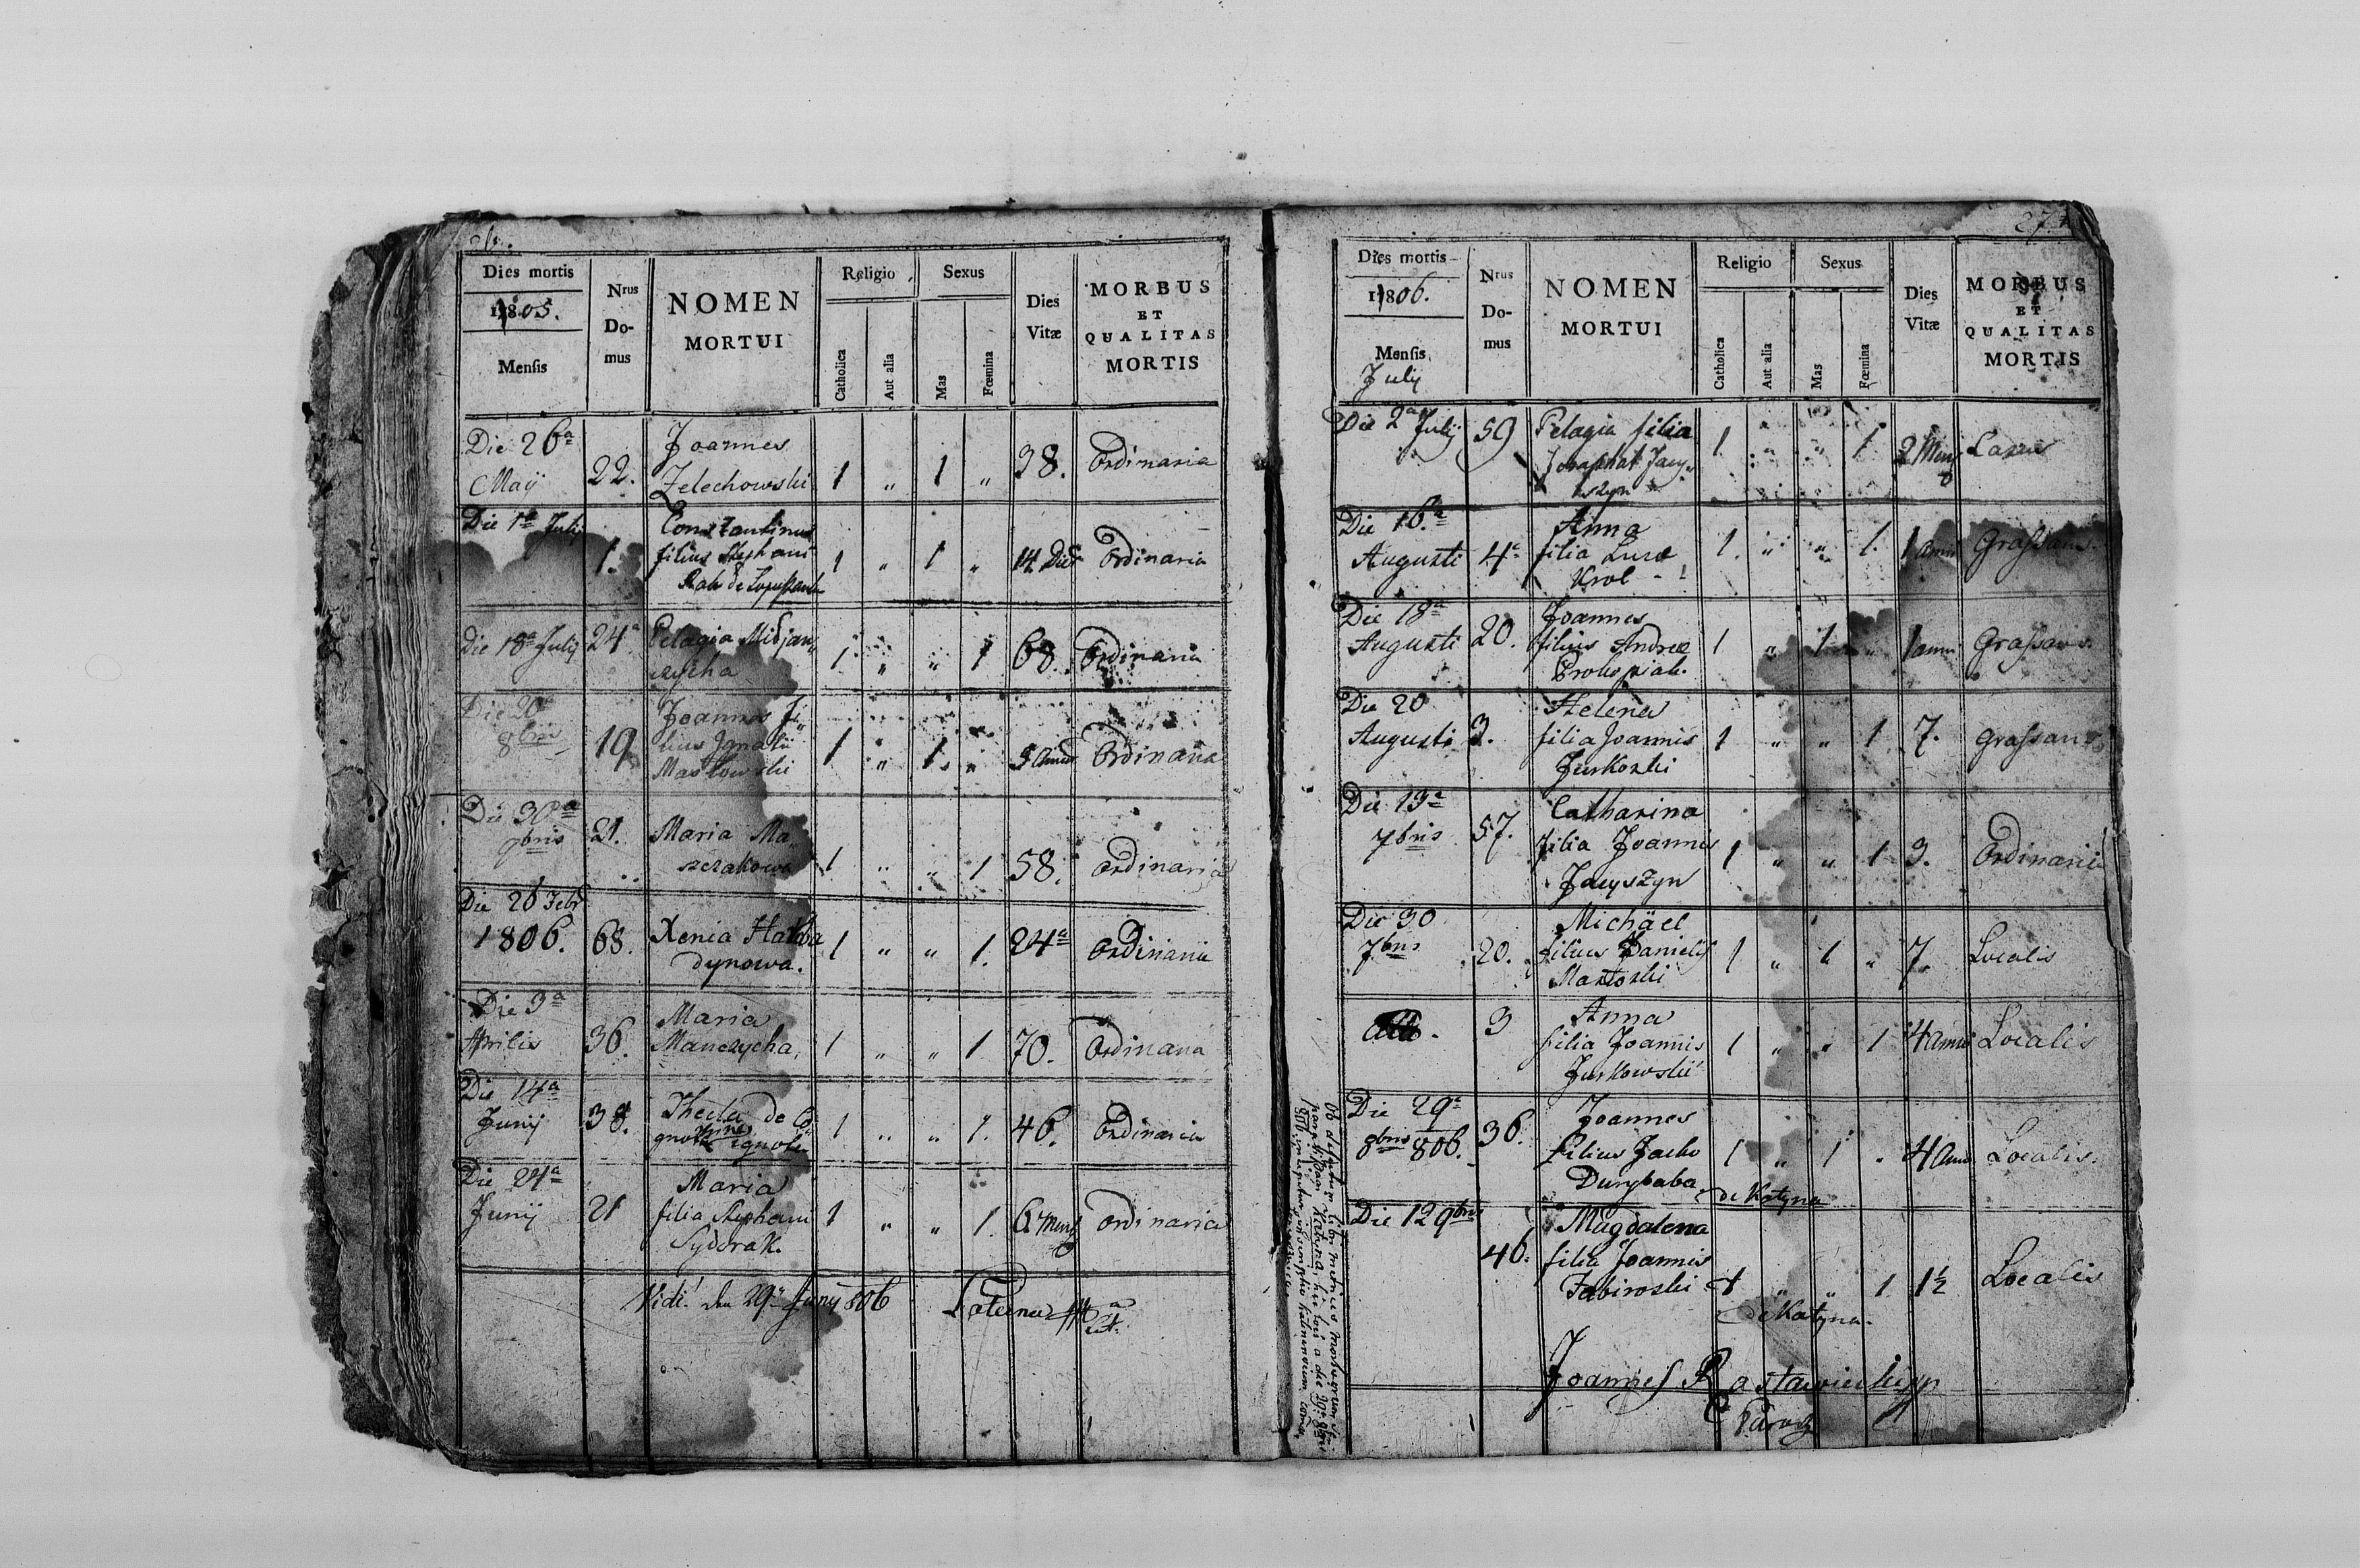 26.
Dies mortis
1805.
Mensis
Nrus Domus
NOMEN
MORTUI
Religio
Catholica
Aut alia
Sexus
Mas
Fœmina
Dies
Vitæ
MORBUS
ET
QUALITAS
MORTIS
Die 26a
Maij
22.
Joannes
Zelechowski
1 „ 1 „ 38. Ordinaria
Die 1a Julij
1.
Constantinus
filius Stephani
1 „ 1 „ 14 Die Ordinaria
Die 18a Julij
24a
Pelagia Midjan„
czycha
1 „ „ 1 68. Ordinaria
Die 20a
8bris
19
Joannes fi„
lius Ignatii
Maslowski
1 „ 1 „ 5 Ordinaria
Die 30a
9bris
21.
Maria Ma„
szczakowa
1 „ „ 1 58. Ordinaria
Die 26 Febr
1806.
68.
Xenia
dynowa.
1 „ „ 1. 24a Ordinaria
Die 3a
Aprilis
36.
Maria
Manczycha,
1 „ „ 1 70. Ordinaria
Die 14a
Junij
38.
Thecla de Co„
1 „ „ 1. 46. Ordinaria
Die 24a
Junij
21
Maria
filia Stephani
Sydorak.
1 „ „ 1. 6 Mens Ordinaria
Vidi! den 29ª Juny 806
27.
Dies mortis
1806.
Mensis
Julij
Nrus Domus
NOMEN
MORTUI
Religio
Catholica
Aut alia
Sexus
Mas
Fœmina
Dies
Vitæ
MORBUS
ET
QUALITAS
MORTIS
Die 2a Julij
59
Pelagia filia
Josaphat Jacy„
szyn
1 „ „ 1 2 Mens
Die 16a
Augusti
4a
Anna
filia Lucæ
Krol
1. „ „ 1. 1 Grassans.
Die 18a
Augusti
20.
Joannes
filius Andreæ
Prokopiak.
1 „ 1 „ 1 Grassans.
Die 20
Augusti
3.
Helena
filia Joannis
Jurkoski
1 „ „ 1 7. Grassans
Die 13a
7bris
57.
Catharina
filia Joannis
Jacyszyn
1 „ „ 1 3. Ordinaria
Die 30
7bris
20.
Michäel
filius Danielis
Mastoski
1 „ 1 „ 7. Localis
3
Anna
filia Joannis
Jurkowski
1 „ „ 1 4 Localis
Die 29a
8bris 806.
36.
Joannes
filius Jacko
Durybaba
de Katyna
1 „ 1 „ 4 Localis.
Die 12 9bris
46.
Magdalena
filia Joannis
Fabiroski
de Katyna.
1 „ „ 1 1½ Localis
Joannes Rastawiecki